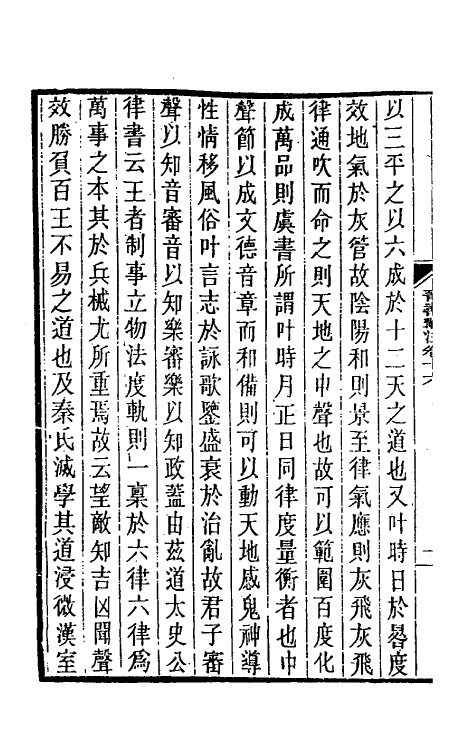 以三平之以六成於十二天之道也又叶時日於晷度
效地氣於灰管故陰陽和則景至律氣應則灰飛灰飛
律通吹而命之則天地之中聲也故可以範圍百度化
成萬品則虞書所謂叶時月正日同律度量衡者也中
聲節以成文德音章而和備則可以動天地感鬼神導
性情移風俗叶言志於詠歌鑒盛衰於治亂故君子審
聲以知音審音以知樂審樂以知政蓋由茲道太史公
律書云王者制事立物法度軌則一稟於六律六律爲
萬事之本其於兵械尤所重焉故云望敵知吉凶聞聲
效勝負百王不易之道也及秦氏滅學其道浸微漢室
晉書斠注卷十六